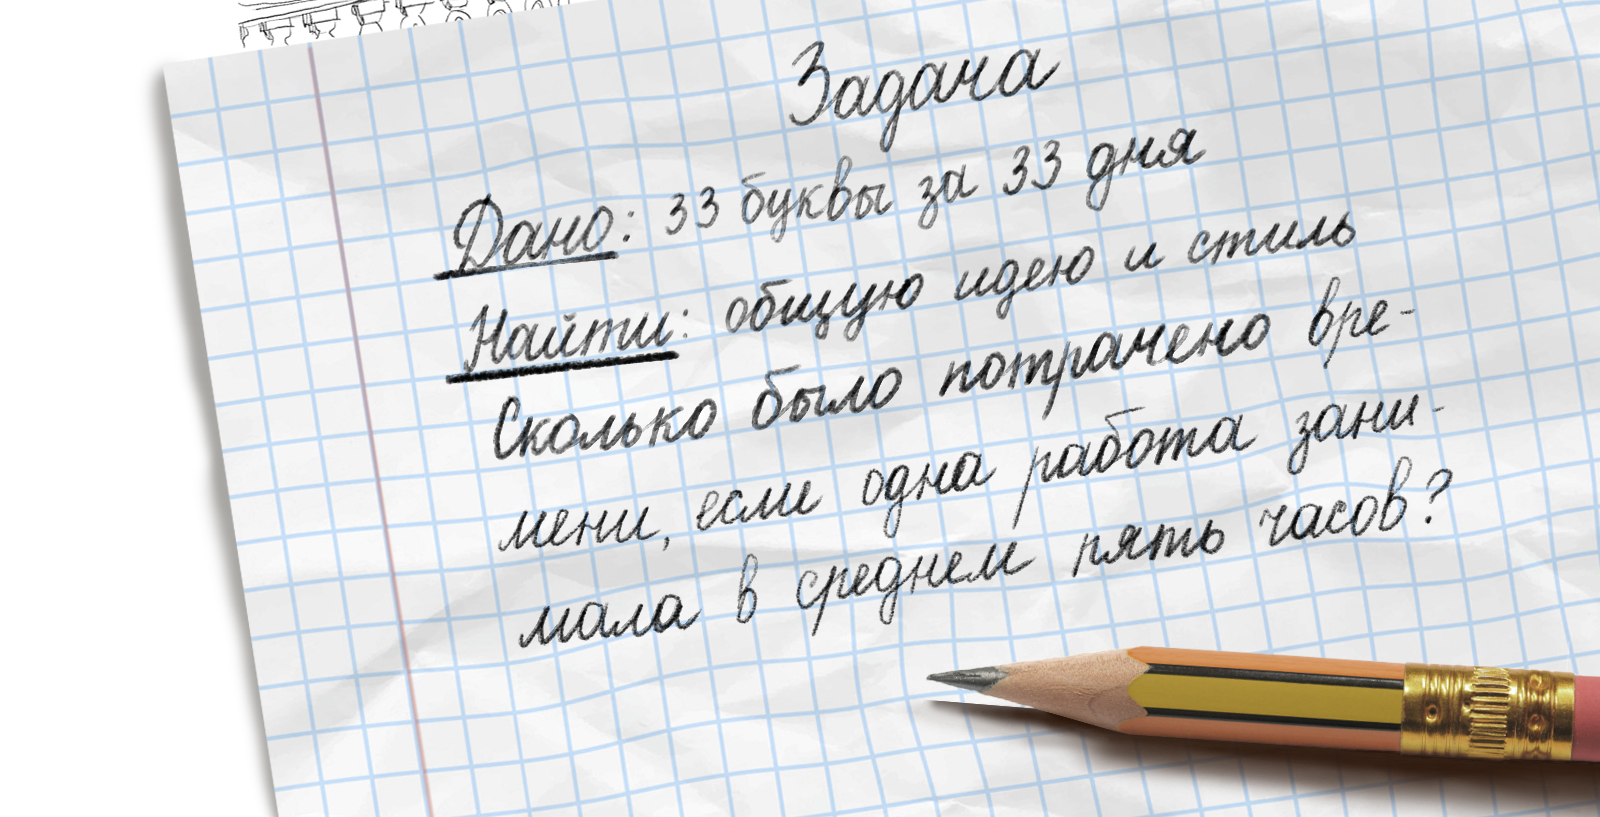 Задача
Дано: 33 буквы за 33 дня
Найти: общую идею и стиль
Сколько было потрачено вре-
мени, если одна работа зани-
мала в среднем пять часов?